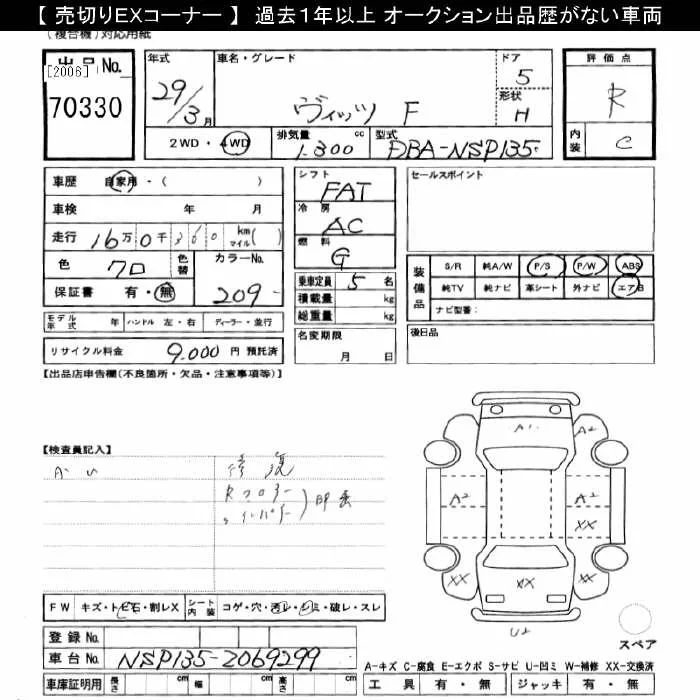 【 売切りEXコーナー 】 過去1年以上 オークション出品歴がない車両
(複合機)対応用紙
出品No. [2006] 70330
年式 29/3月
車名・グレード ヴィッツ F
ドア 5
形状 H
2WD・4WD
排気量 1.300 cc
型式 DBA-NSP135-
評価点 R
内装 C
車歴 自家用・( )
車検 年 月
走行 16万0千360 km マイル( )
色 クロ 色替 カラーNo. 209-
保証書 有・無
モデル年式 年 ハンドル 左・右 ディーラー・並行
リサイクル料金 9,000 円 預託済
シフト FAT
冷房 AC
燃料 G
乗車定員 5 名
積載量 kg
総重量 kg
名変期限
月 日
セールスポイント
装備品 S/R 純A/W P/S P/W ABS
純TV 純ナビ 革シート 外ナビ エアB
ナビ型番:
後日品
【出品店申告欄(不良箇所・欠品・注意事項等)】
【検査員記入】
修復
Rフロアー
インパナー
A1 A2
A2 A2
XX
XX XX XX
U2
スペア
FW キズ・トビ石・割レX シート内装 コゲ・穴・汚レ・シミ・破レ・スレ
登録No.
車台No. NSP135-2069299
車庫証明用 長さ cm 幅 cm 高さ cm
A-キズ C-腐食 E-エクボ S-サビ U-凹ミ W-補修 XX-交換済
工具 有・無 ジャッキ 有・無